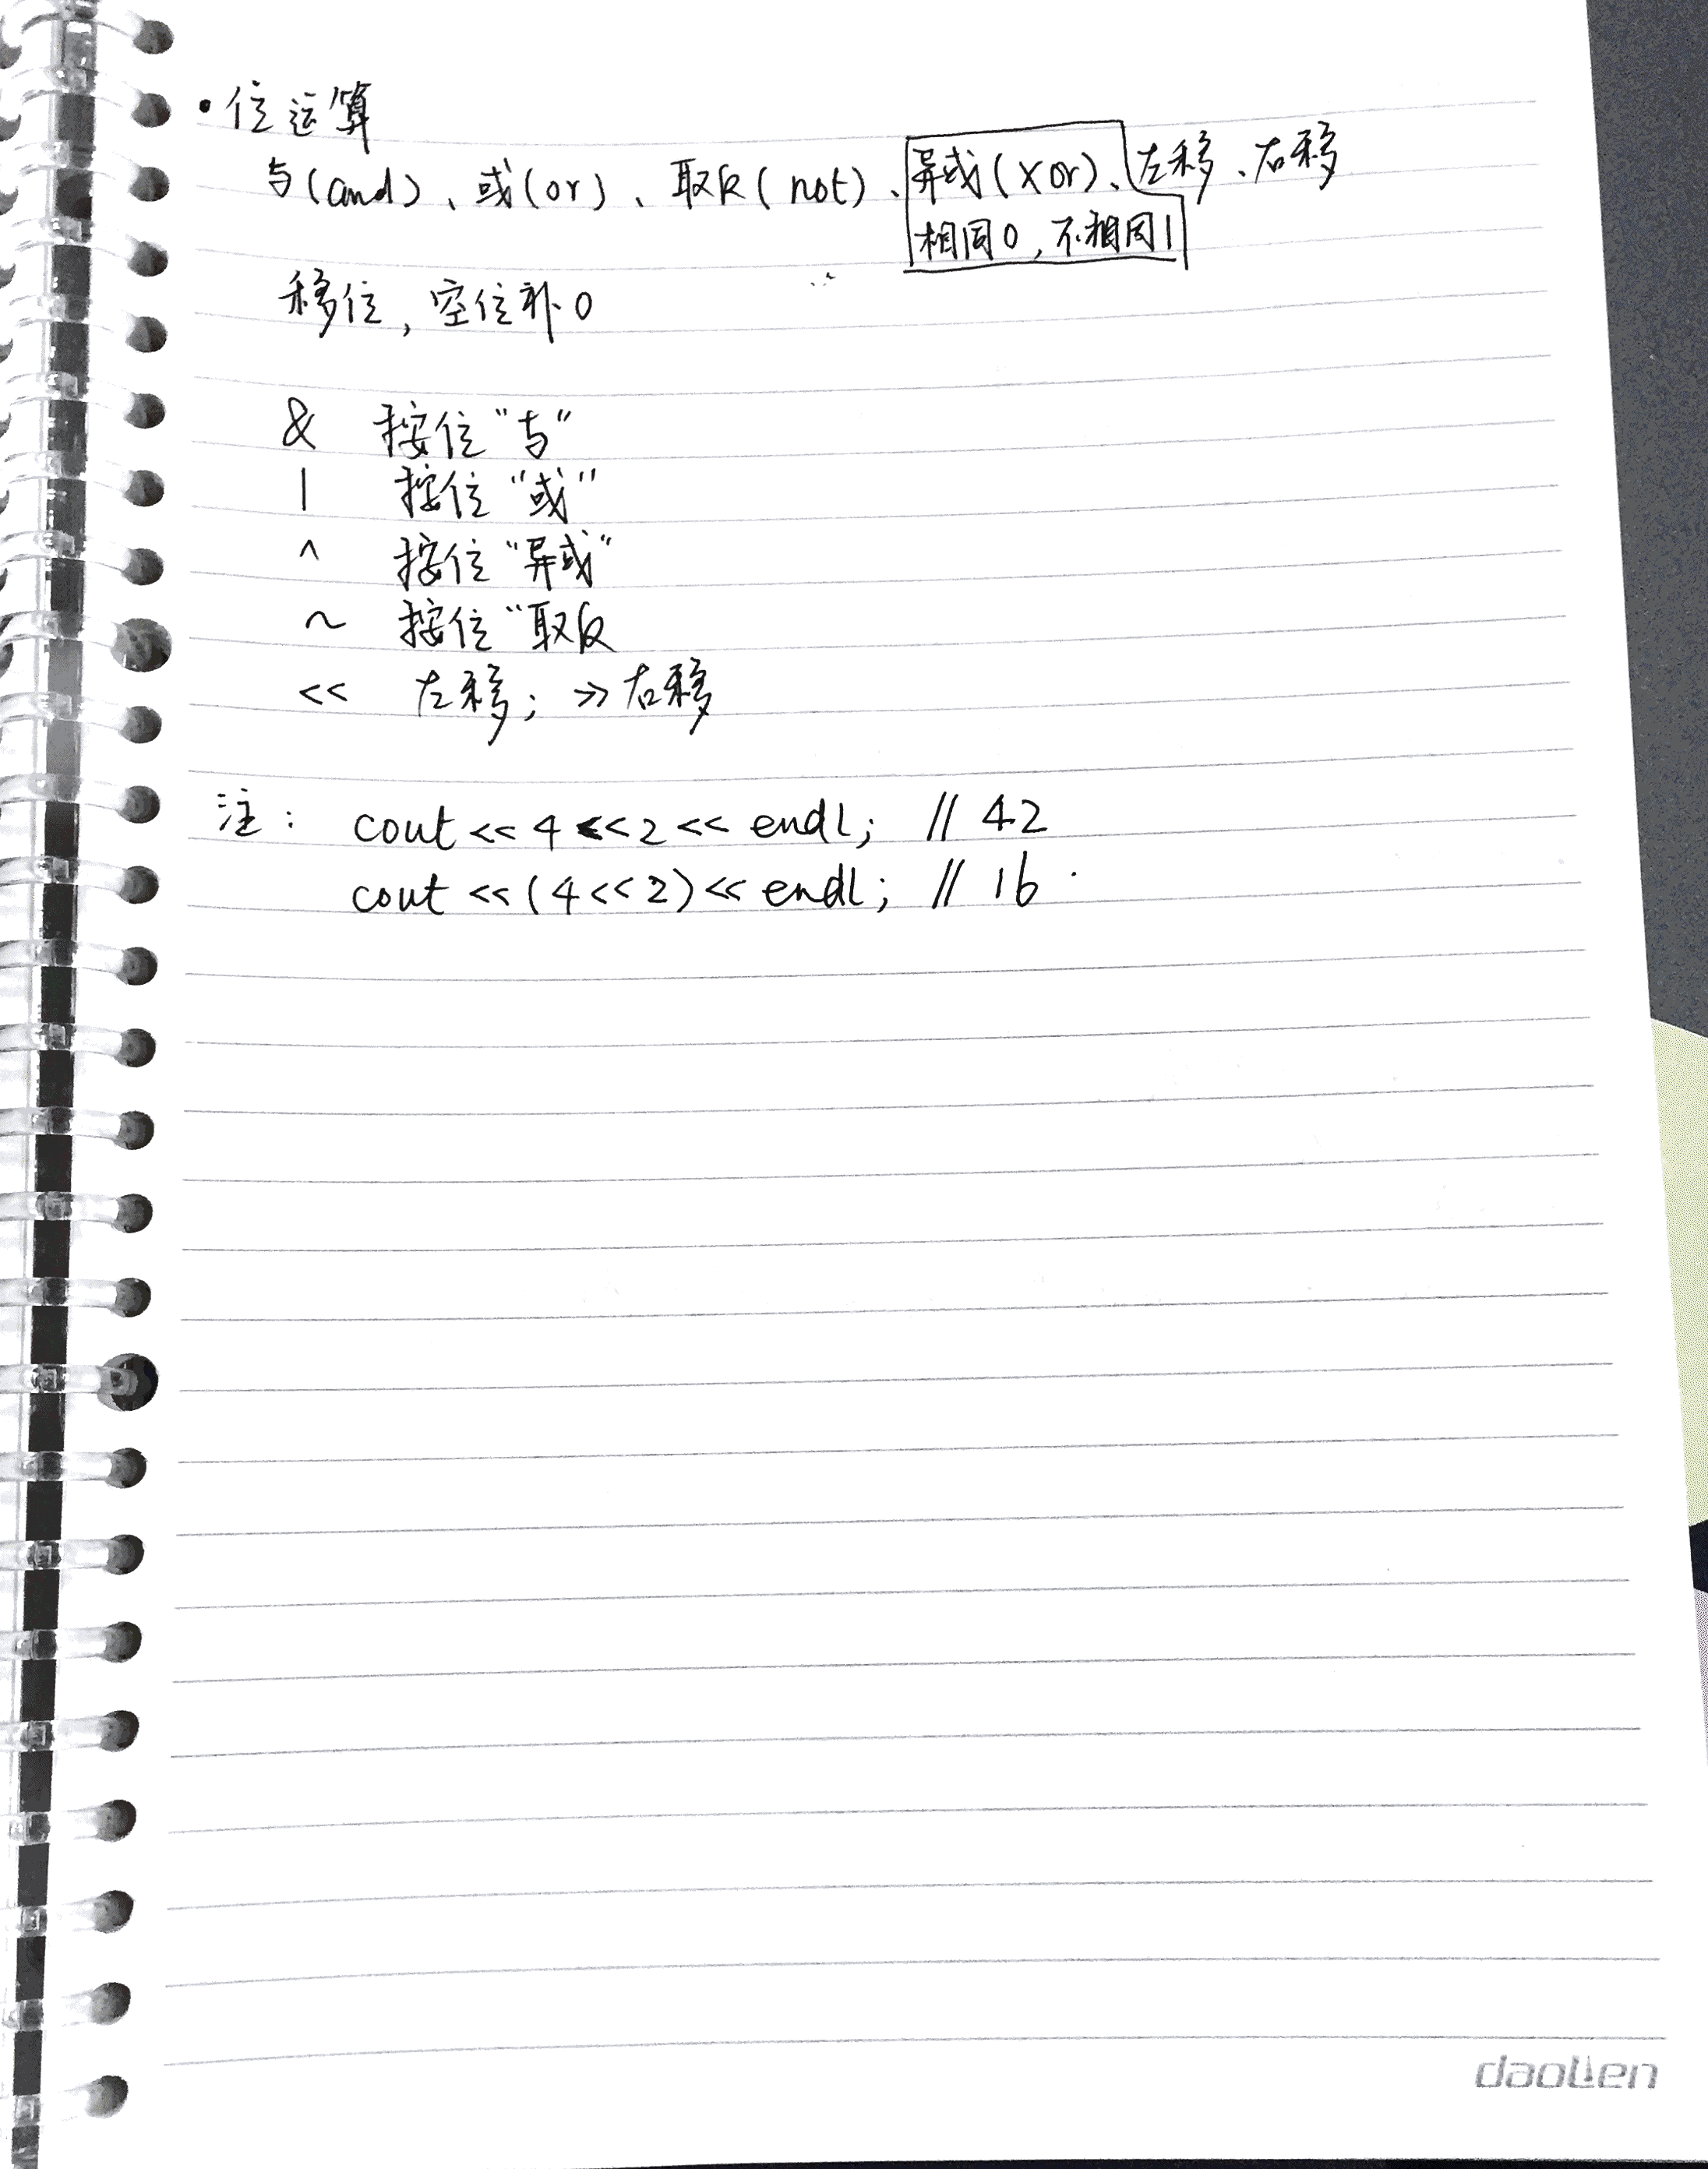 ·位运算
与(and)、或(or)、取反(not)、异或(xor)、左移、右移
相同0,不相同1
移位,空位补0
& 按位“与”
| 按位“或”
^ 按位“异或”
~ 按位“取反
<< 左移; >>右移
注: cout << 4 << 2 << endl; // 42
cout << (4<<2) << endl; // 16
daolen